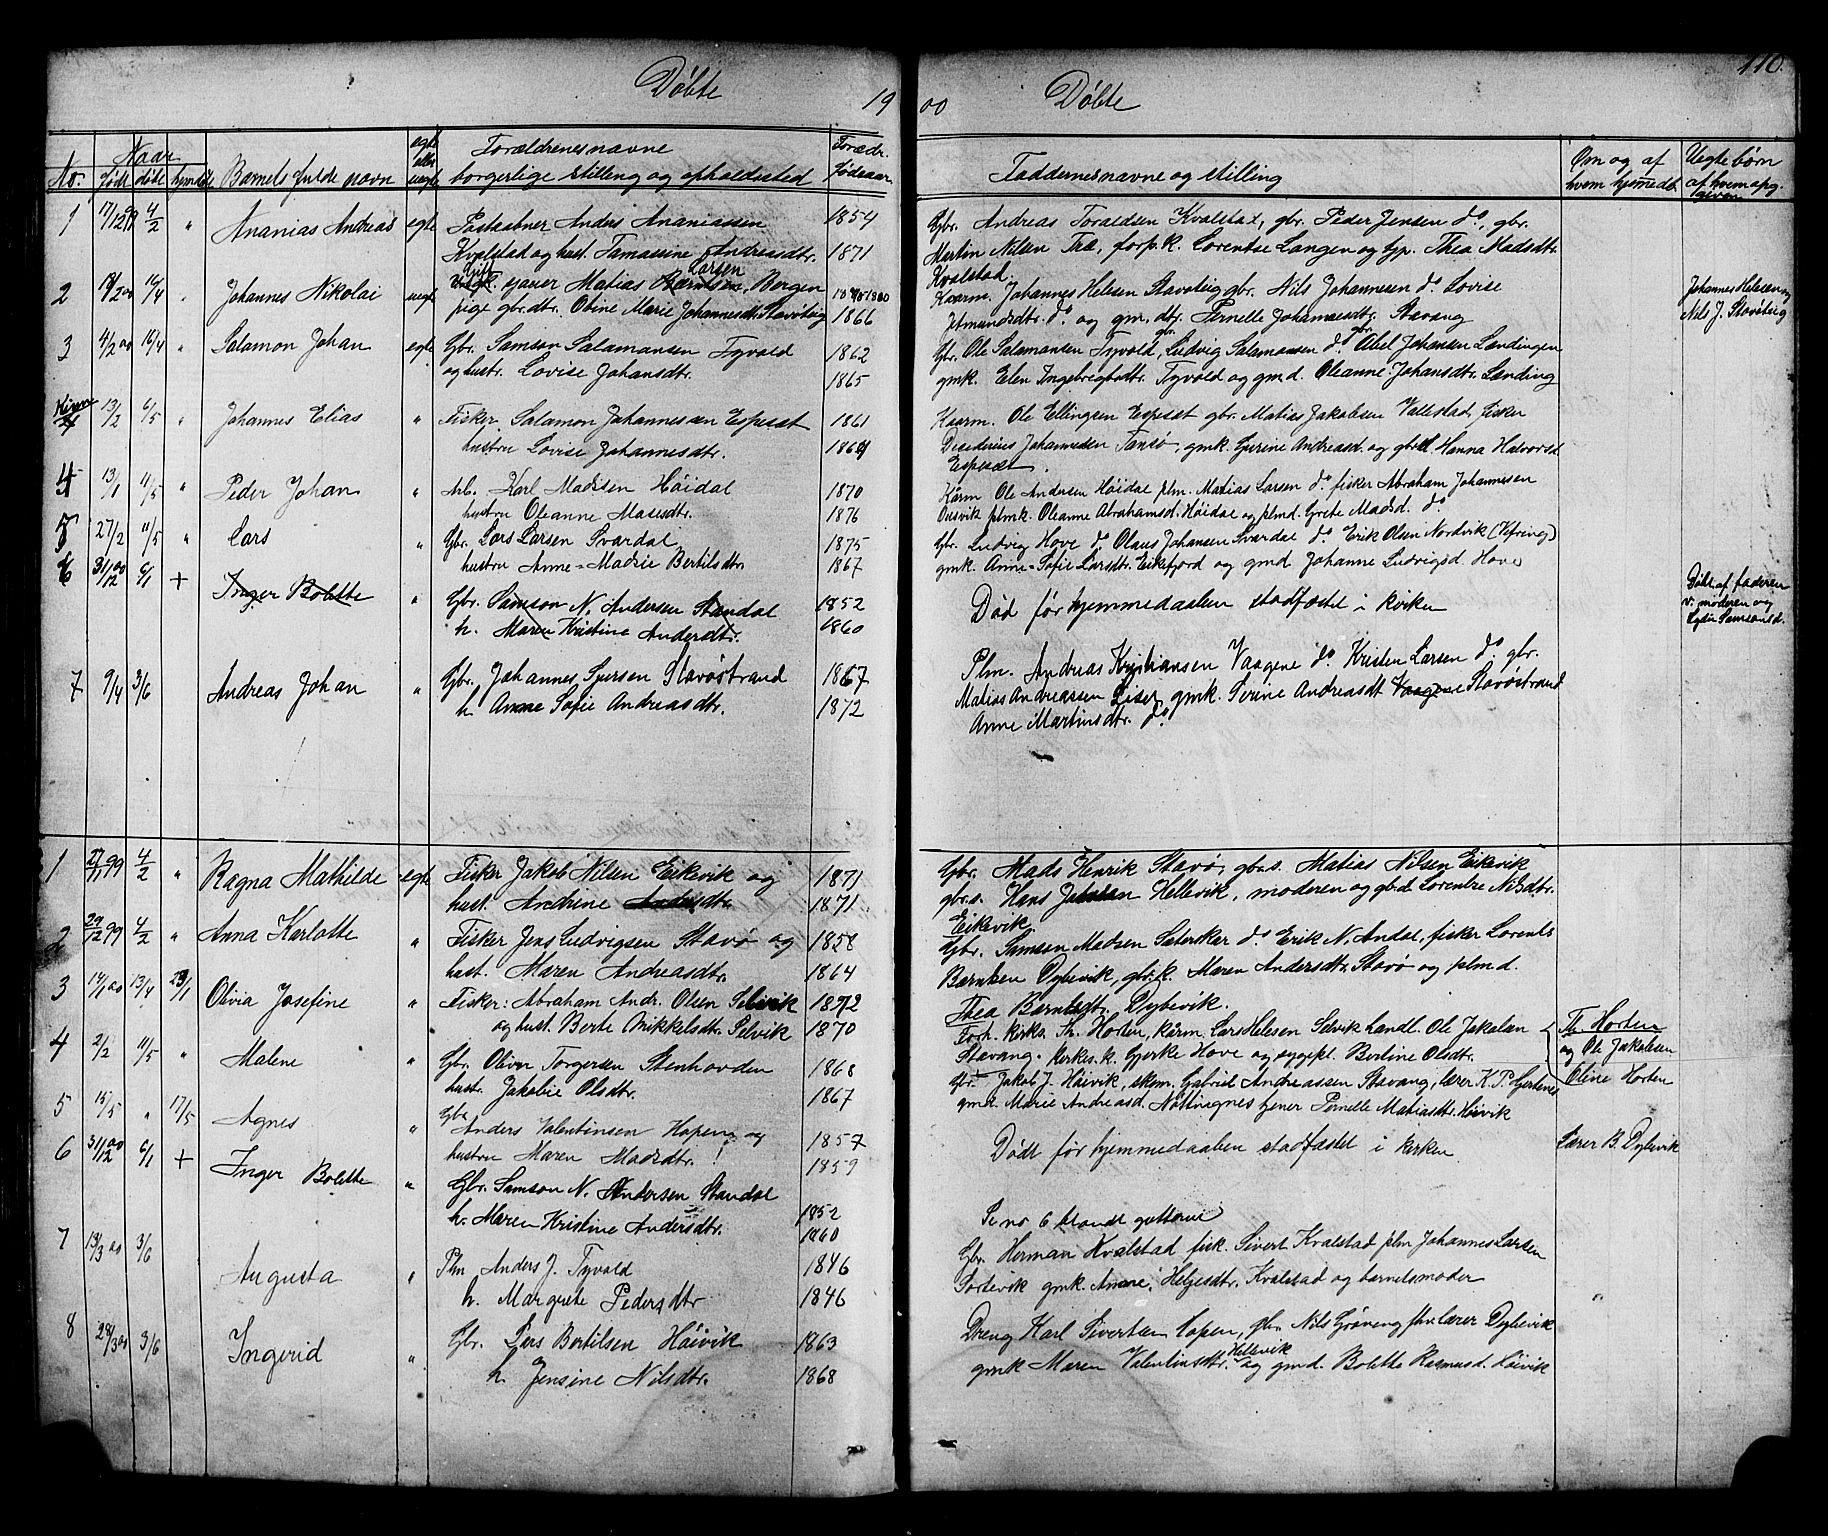 110.
Døbte 19
00 Døbte
No. Naar født døbt hjemdøb Barnets fulde navn egte eller uegte Forældrenes navne borgerlige stilling og opholdssted Forædr. fødseaar
Faddernes navne og stilling Om og af hvem hjemedøb. Uegte børn af hvem opg. given
1 17/12 99 4/2 " Ananias Andreas egte Postaabner Anders Ananiassen 1854
Kvalstad og hust. Tamasine Andreasdtr. 1871
Gbr. Andreas Toraldsen Kvalstad, gbr. Peder Jensen do, gbr.
Martin Nilsen Træ, forp.k. Lorentse Langen og tjp. Thea Madsdtr.
Kvalstad.
2 16/4 " Johannes Nikolai uegte Gift gaver Matias Larsen, Bergen
pige gbr.dtr. Oline Marie Johannesdtr. Stavøteig 1866
Kaarm. Johannes Helesen Stavøteig gbr. Nils Johannesen do Lovise
Jetmundsdtr. do og gm. dtr. Pernelle Johannesdtr. Stavang
Johannes Helesen og
Nils J. Stavøteig
3 4/2 00 16/4 " Salamon Johan egte Gbr. Samson Salamansen Tyvold 1862
og hustr. Lovise Johansdtr. 1865
Gbr. Ole Salamansen Tyvold, gbr. Ludvig Salamansen do gbr. Abel Johansen Lendingen
gmk. Elen Ingebregtsdtr. Tyvold og gmd. Oleanne Johansdtr. Lending
Kinn 13/2 6/5 " Johannes Elias " Fisker Salamon Johannesen Espeset 1861
hustru Lovise Johannesdtr.
Kaarm. Ole Ellingsen Espeset gbr. Matias Jakobsen Vallestad, fisker
Desiderius Johannesen Tansø, gmk. Gurine Andreasd. og gbrd. Hanna Halvorsd.
Espeset.
4 13/1 11/5 " Peder Johan " Arb. Karl Madssen Høidal 1870
hustru Oleanne Masesdtr. 1876
Kårm Ole Andersen Høidal plm. Matias Larsen do fisker Abraham Johannesen
Ousvik plmk. Oleanne Abrahamsd. Høidal og plmd. Grete Madsd. do
5 27/2 11/5 " Lars " Gbr. Lars Larsen Svardal 1875
hustru Anne-Madrie Bertilsdtr. 1867
Gbr. Ludvig Hove do Olaus Johansen Svardal do Erik Olsen Nordvik (Kfring)
gmk. Anne-Sofie Larsdtr. Eikefjord og gmd Johanne Ludvigsd. Hove
6 31/12 00 6/1 + Inger Bolette " Gbr. Samson N. Andersen Standal 1852
h. Maren Kristine Andersdtr. 1860
Død før hjemmedaaben stadfæstet i kirken
Døbt af faderen
v. moderen og
Lydia Samsonsd.
7 9/4 3/6 Andreas Johan " Gbr. Johannes Sjursen Stavøstrand 1867
h. Anne Sofie Andreasdtr. 1872
Plm. Andreas Kristiansen Vaagene do. Kristen Larsen do. gbr.
Matias Andreassen Leset, gmk. Serine Andreasdt. Vaagene Stavøstrand
Anne Martinsdtr. do
1 27/11 99 4/2 " Ragna Mathilde egte Fisker Jakob Nilsen Eikevik og 1871
hust. Andrine 1871
Gbr. Mads Henrik Stavø, gbr.s. Matias Nilsen Eikevik
gbr.s. Hans Jakobsen Hellevik, moderen og gbrd. Lorentze Nilsdtr.
Eikevik
2 29/12 99 4/2 " Anna Karlotte " Fisker Jens Ludvigsen Stavø og 1858
hust. Maren Andreasdtr. 1864
Gbr. Samson Madsen Sæterskar do. Erik N. Andal, fisker Lorents
Berntsen Dybevik, gbr.k. Maren Andersdtr. Stavø og plmd.
Thea Berntsdtr. Dybevik.
3 14/1 00 13/4 23/1 Olivia Josefine " Fisker: Abraham Andr. Olsen Selvik 1872
og hust. Berte Mikkelsdtr. Selvik 1870
Forh. kirkes. Th. Horten, kårm. Lars Helesen Selvik handl. Ole Jakobsen
Stavang. kirkes.k. Gjerke Hove og sygepl. Bertine Olsdtr.
Th. Horten
og Ole Jakobsen
Oline Horten
4 2/2 11/5 " Malene " Gbr. Oliver Torgersen Stenhovden 1868
hustr. Jakobie Olsdtr. 1867
Gbr. Jakob J. Høivik, skom. Gabriel Andreassen Stavang, lærer K. P. Gjertenes
gmd. Marie Andreasd. Nøttingnes tjener Pernelle Matiasdtr. Høivik
5 15/5 " 17/5 Agnes " Gbr. Anders Valentinsen Hopen og 1857
hustru Maren Madsdtr. ! 1859
Lærer B. Dybevik
6 31/12 00 6/1 + Inger Bolette " Gbr. Samson N. Andersen Standal 1852
h. Maren Kristine Andersdtr. 1860
Dødt før hjemmedaaben stadfæstet i kirken
Se no 6 blandt gutterne
7 13/3 00 3/6 Augusta " Plm Anders J. Tyvold 1846
h. Margrete Pedersdtr 1846
Gbr. Herman Kvalstad fisk. Sivert Kvalstad plm Johannes Larsen
Sortevik gmk. Anne Helgesdtr. Kvalstad og barnets moder
8 28/3 00 3/6 Ingerid " Gbr. Lars Bertilsen Høivik 1863
h Jensine Nilsdtr. 1868
Dreng Karl Sivertsen Hopen, gbr. Nils Grøneng fhv. lærer Dybevik
gmk Maren Valentinsdtr. Hellevik og gmd. Bolette Rasmusd. Høivik